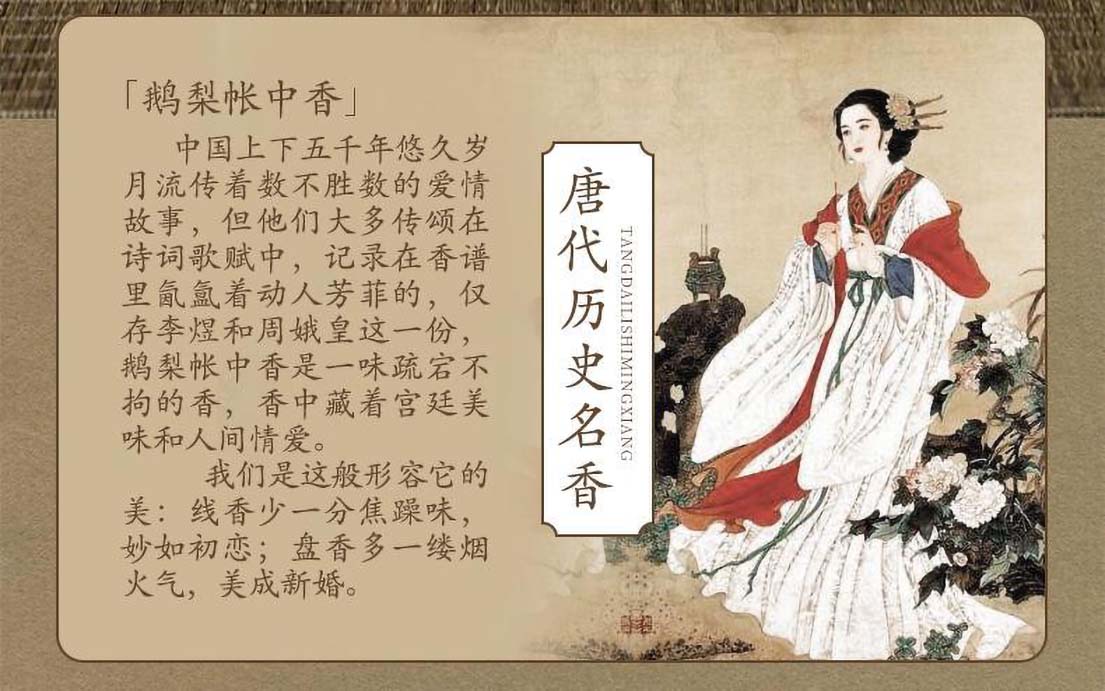 「鹅梨帐中香」
中国上下五千年悠久岁
月流传着数不胜数的爱情
故事，但他们大多传颂在
诗词歌赋中，记录在香谱
里氤氲着动人芳菲的，仅
存李煜和周娥皇这一份，
鹅梨帐中香是一味疏宕不
拘的香，香中藏着宫廷美
味和人间情爱。
我们是这般形容它的
美：线香少一分焦躁味，
妙如初恋；盘香多一缕烟
火气，美成新婚。
唐代历史名香
TANGDAILISHIMINGXIANG